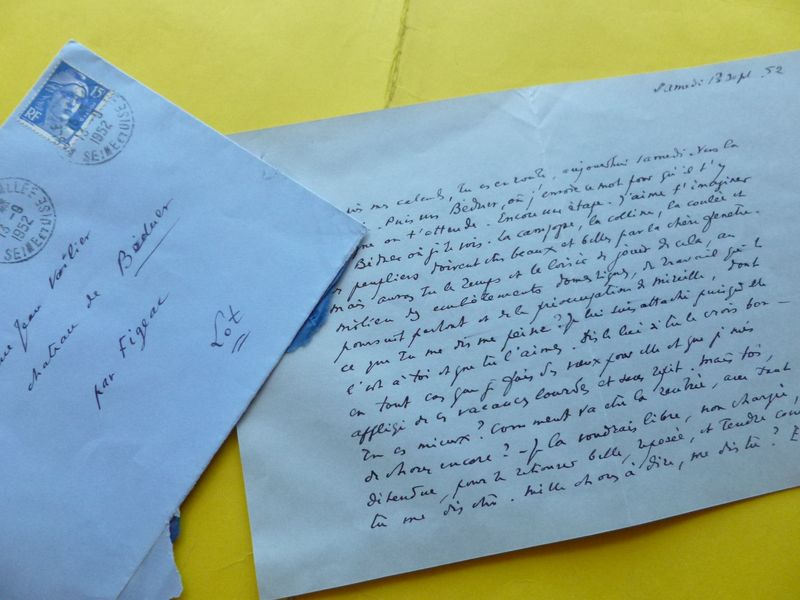 15
RF
13-9
1952
SEINE ET OISE
VALLÉE
13-9
1952
SEINE ET OISE
Jean Voilier
chateau de Béduer
par Figeac
Lot
Samedi 13 sept. 52
mes calculs, tu es en route. aujourd'hui samedi vers la
Puis vers Béduer, où j'envoie ce mot pour qu'il t'y
on t'attende. Encore une étape. J'aime t'imaginer
Béduer où je te vois. La campagne, la colline, la coulée et
peupliers doivent être beaux et belles par la chère fenêtre.
mais auras tu le temps et le loisir de jouir de cela, au
milieu des embêtements domestiques, du travail qui te
poursuit partout et de la préoccupation de mireille, dont
ce que tu me dis me peine? Je lui suis attaché puisqu'elle
c'est à toi et que tu l'aimes. Dis le lui si tu le crois bon —
en tout cas que je fais des vœux pour elle et que je suis
affligé de ces vacances lourdes et sans répit. mais toi,
Tu es mieux? Comment va être la rentrée, avec tant
de choses encore? — Je la voudrais libre, non chargée,
détendue, pour te retrouver belle, reposée, et tendre
tu me dis être. mille choses à dire, me dis tu?